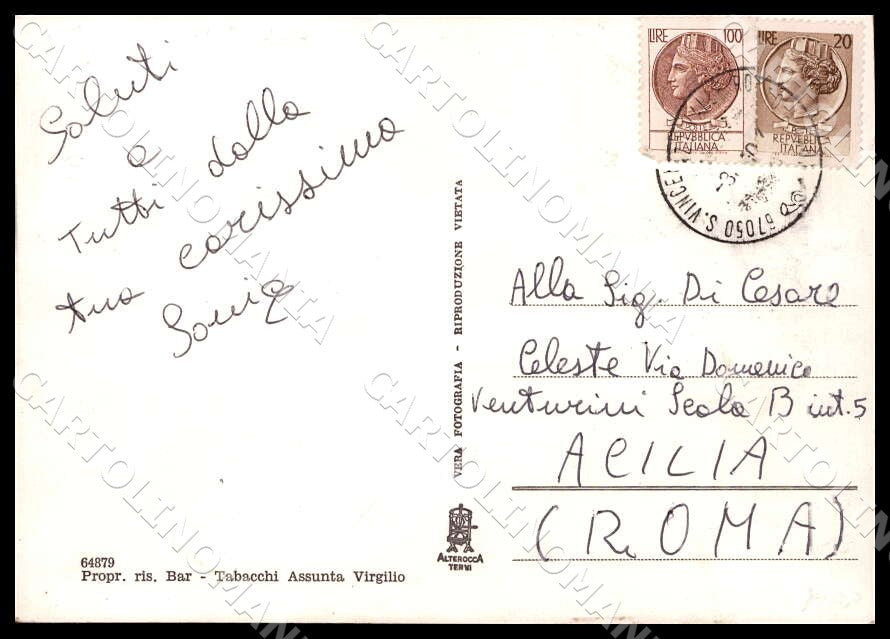 Saluti
a
Tutti dalla
tua carissima
Sonia
64879
Propr. ris. Bar - Tabacchi Assunta Virgilio
VERA FOTOGRAFIA - RIPRODUZIONE VIETATA
ALTEROCCA
TERNI
LIRE 100
REPVBBLICA
ITALIANA
LIRE 20
REPVBBLICA
ITALIANA
67050 S. VINCE
Alla Sig. Di Cesare
Celeste Via Domenico
Venturini Scala B int. 5
ACILIA
(ROMA)
CARTOLINOMANIA